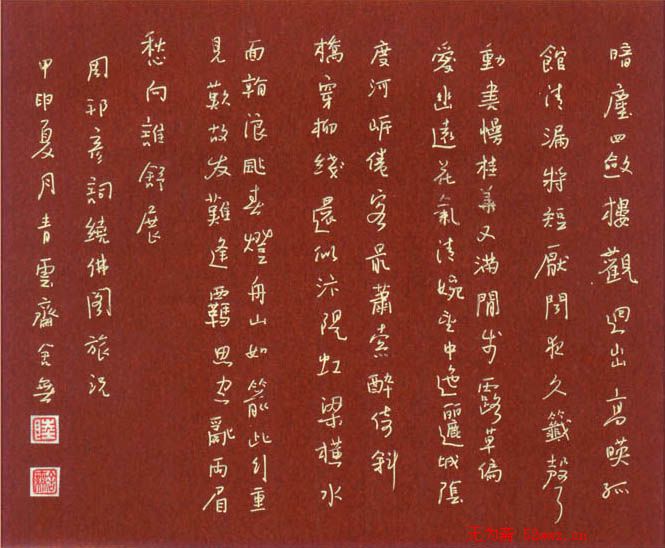 暗塵四斂樓觀迥出高暎孤
館清漏將短厭聞夜久籤聲
動書幔桂華又滿閒步露草偏
愛幽遠花氣清婉望中迤邐城陰
度河岸倦客最蕭索醉倚斜
橋穿柳綫還似汴隄虹梁橫水
面浪颭春燈舟如箭此行重
見歎故友難逢羈思空亂兩眉
愁向誰舒展
周邦彥詞繞佛閣旅況
甲申夏月青雲齋
陸